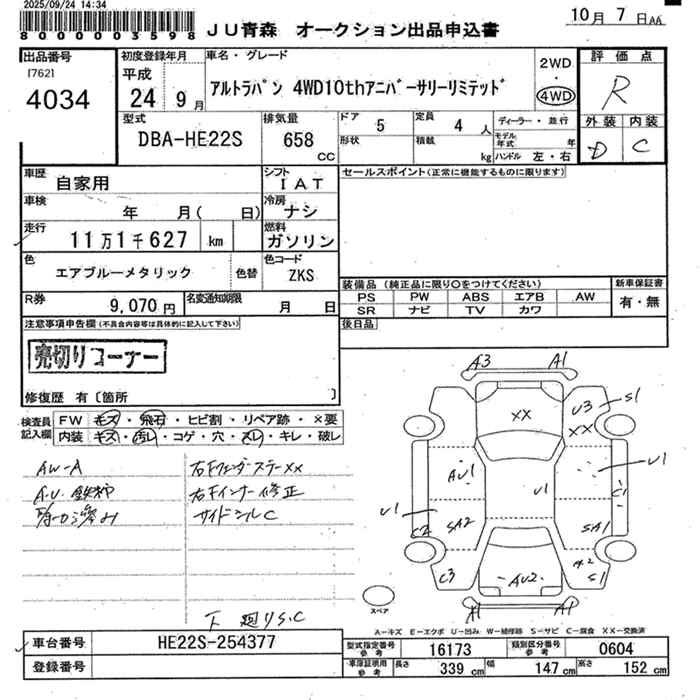 2025/09/24 14:34
8000003598
JU青森 オークション出品申込書
10月 7日AA
出品番号
17621
4034
初度登録年月
平成
24年9月
車名・グレード
アルトラパン 4WD10thアニバーサリーリミテッド
2WD
・
4WD
評価点
R
外装 内装
D C
型式
DBA-HE22S
排気量
658 CC
ドア
5
定員
4 人
形状
積載
kg
ディーラー・並行
モデル年式 年
ハンドル 左・右
車歴
自家用
シフト
IAT
車検
年 月( 日)
冷房
ナシ
走行
11万1千627 km
燃料
ガソリン
色
エアブルーメタリック
色替
色コード
ZKS
R券
9,070円
名変通知期限
月 日
セールスポイント(正常に機能するものに限ります)
装備品(純正品に限り○をつけてください)
PS PW ABS エアB AW
SR ナビ TV カワ
新車保証書
有・無
後日品
注意事項申告欄(不具合内容等は具体的に記入して下さい)
売切りコーナー
修復歴 有〔箇所 〕
検査員記入欄
FW キズ・飛石・ヒビ割・リペア跡・×要
内装 キズ・汚レ・コゲ・穴・スレ・キレ・破レ
AW-A
右Fフェンダーステー××
右Fインナー修正
サイドシルC
下廻りS.C
A3 A1
U3 S1
XX
XX
AU1
U1
U1
U1
C1
C2
SA2
SA1
A2
C3
AU2
S1
A1 A1
スペア
A-キズ E-エクボ U-凹み W-補修跡 S-サビ C-腐食 XX-交換済
車台番号
HE22S-254377
登録番号
型式指定番号
参考
16173
類別区分番号
参考
0604
車庫証明用
参考
長さ 339 cm
幅 147 cm
高さ 152 cm